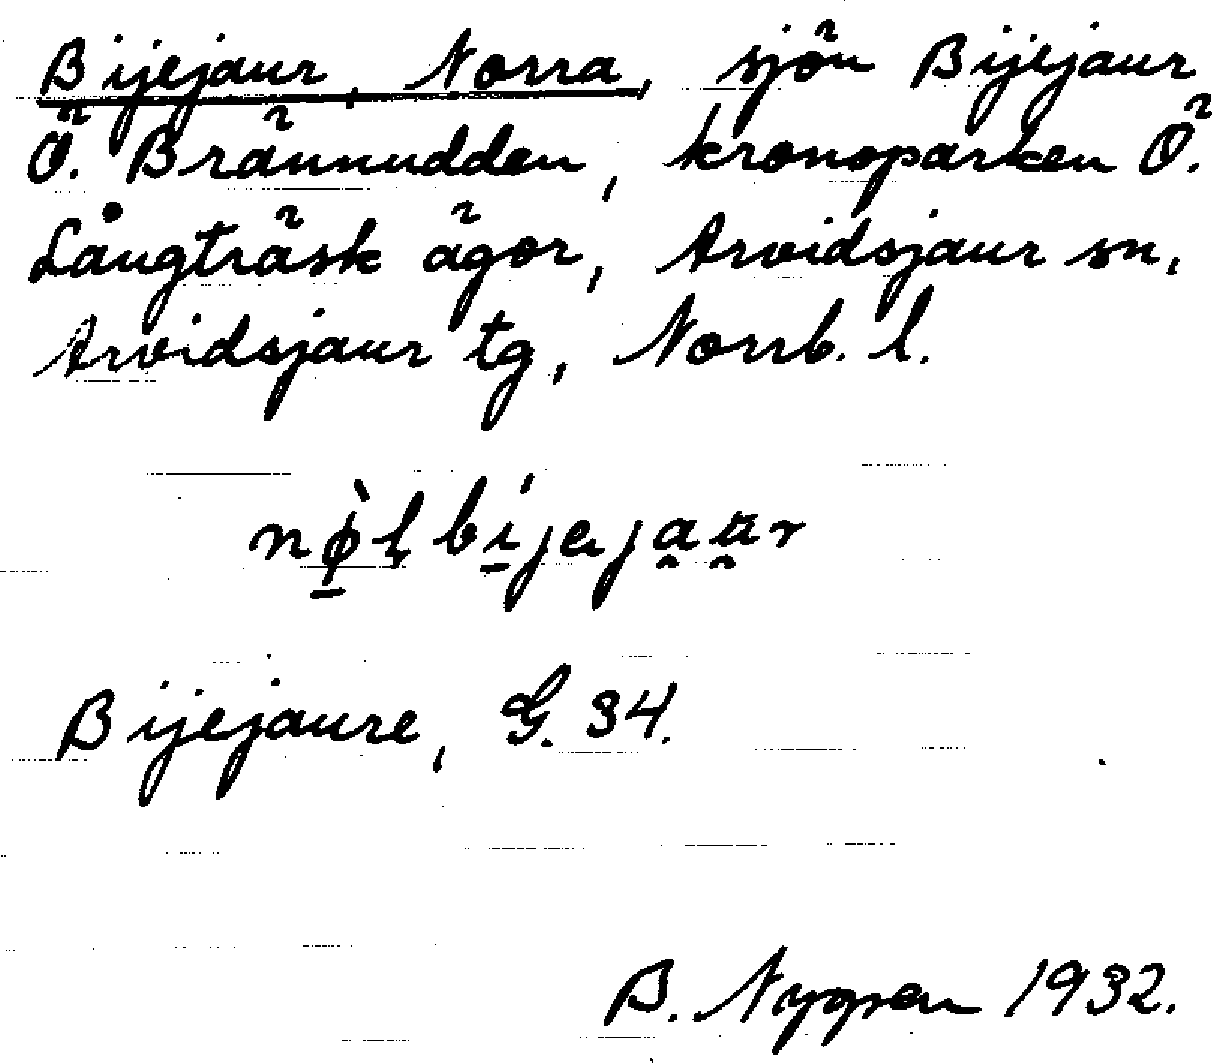 Bijejaur, Norra, sjön Bijejaur
Ö. Brännudden, kronoparken Ö.
Långträsk ägor, Arvidsjaur sn,
Arvidsjaur tg, Norrb. l.
bijejaur
Bijejaure, G. 34.
B. Nygren 1932.